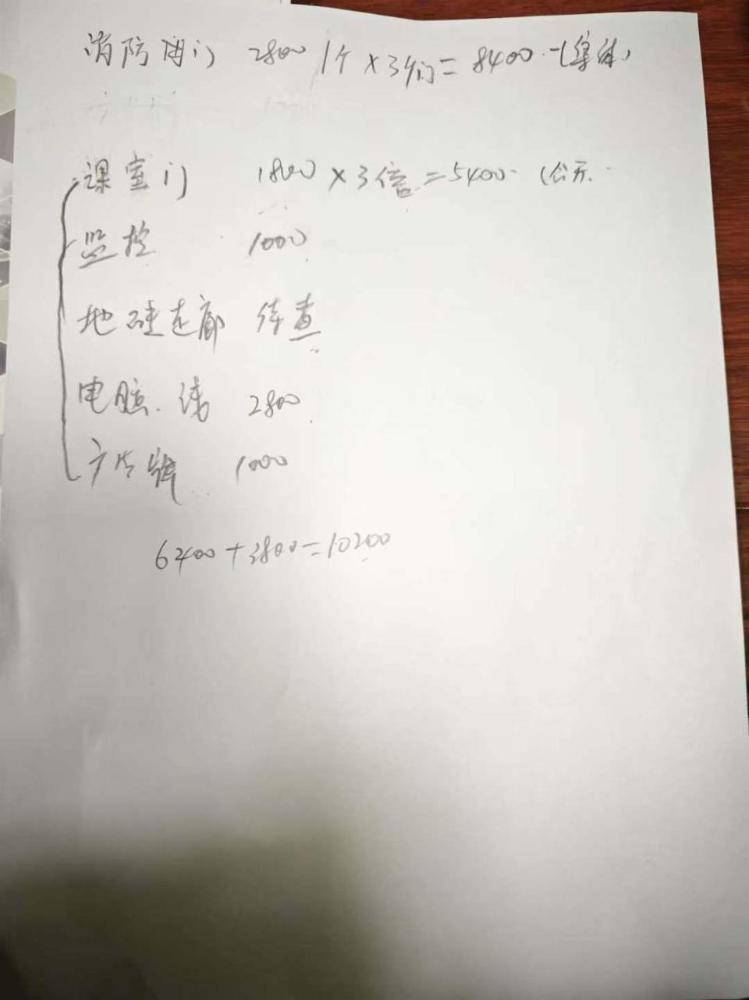 消防门 2800 1个×3个=8400 (集体)
课室门 1800×3倍=5400 (公示
监控 1000
地砖走廊 待查
电脑、线 2800
广告牌 1000
6400+3800=10200